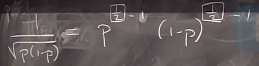 1/√(p(1-p)) = p^(1/2 - 1) (1-p)^(1/2 - 1)